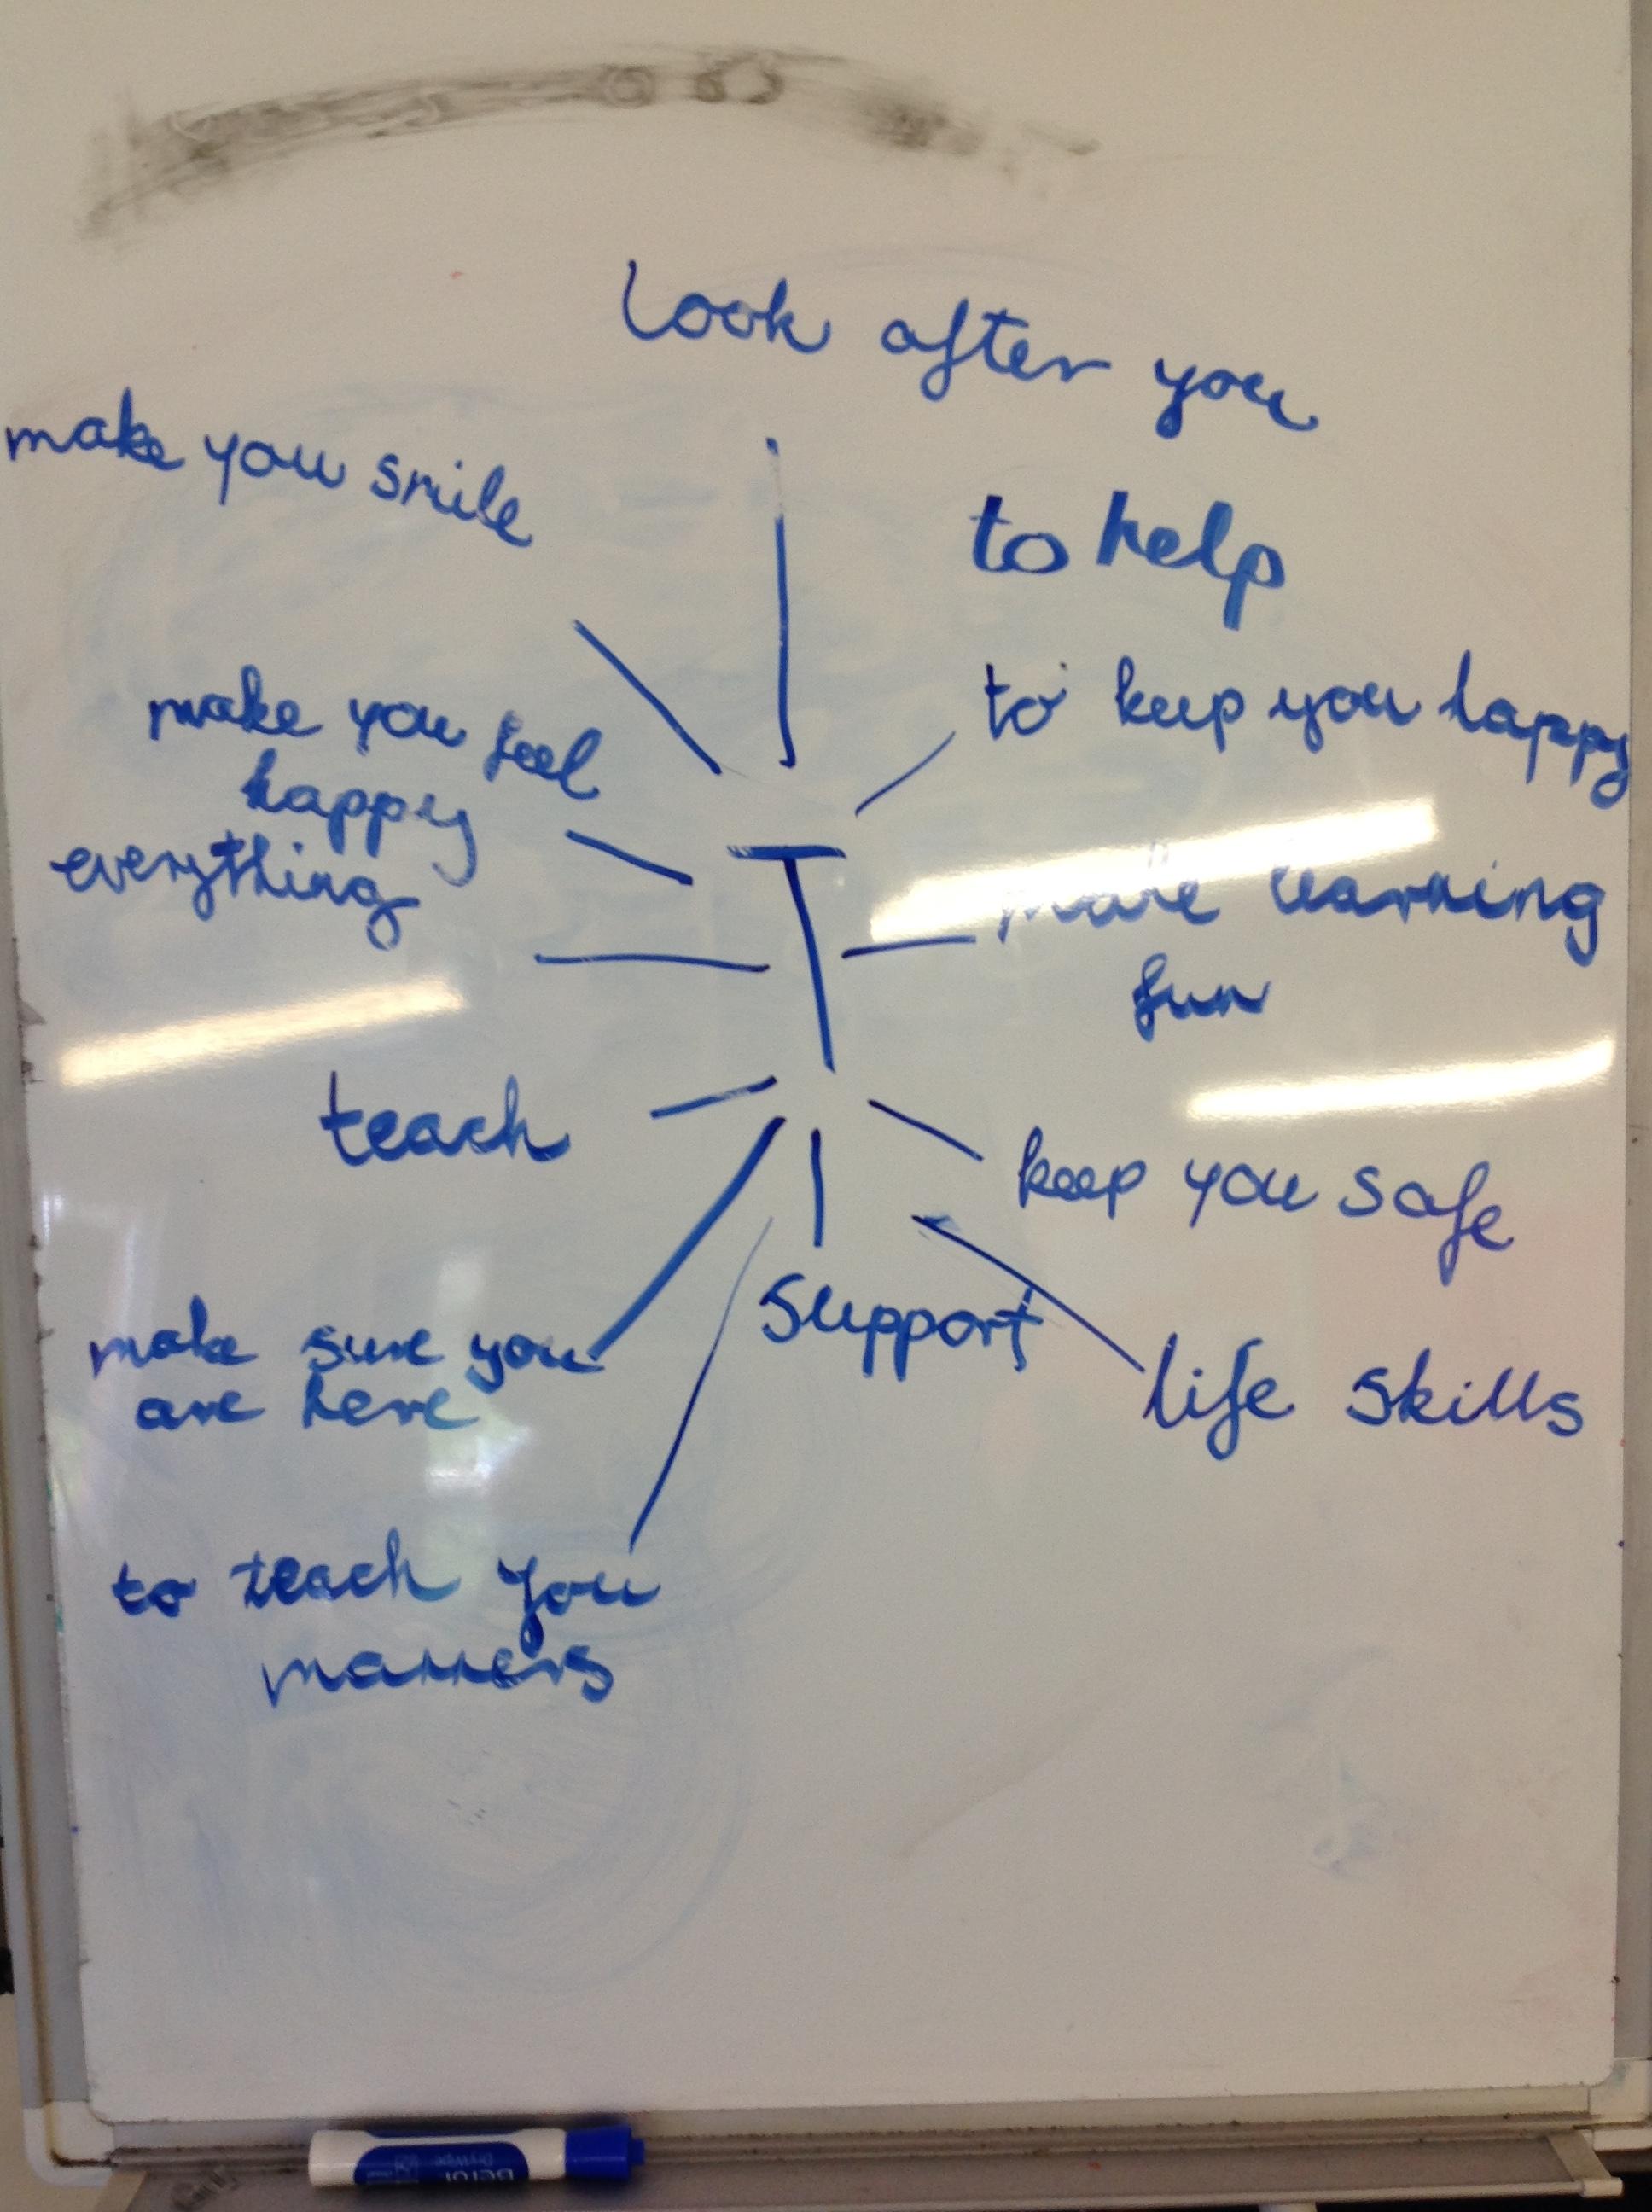 look after you
make you smile
to help
to keep you happy
make you feel
happy
everything
T
make learning
fun
teach
keep you safe
support
make sure you
are here
life skills
to teach you
manners
Berol
DryWipe